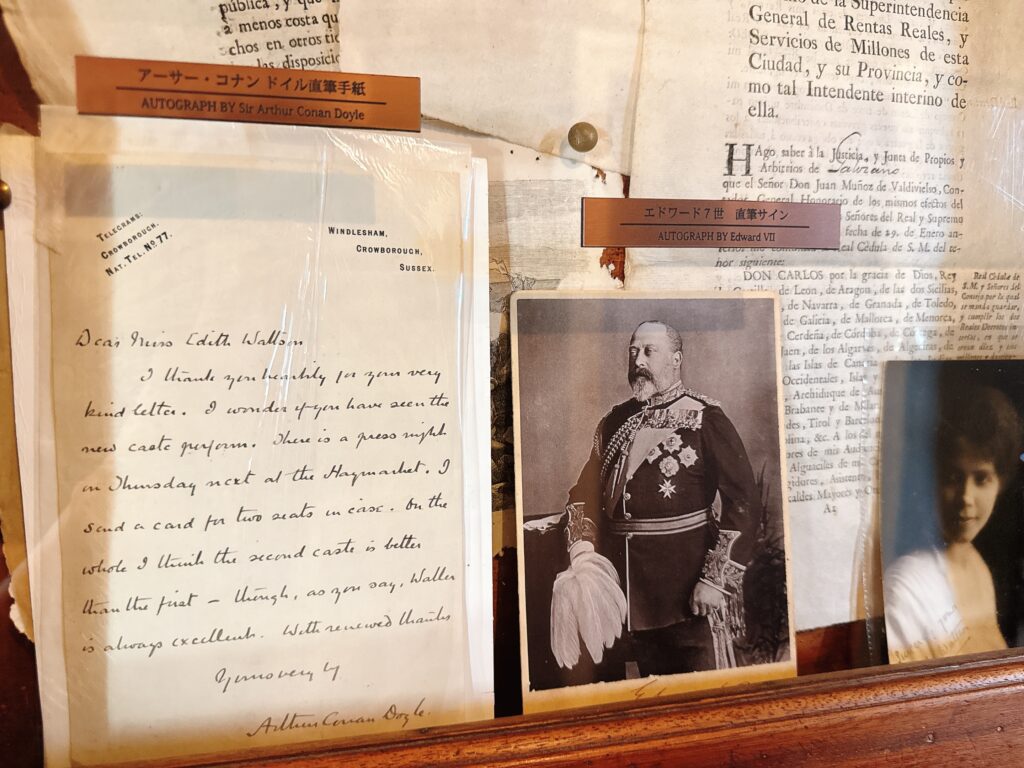 pública, y que
a menos costa qu
chos en otros tie
las disposicio
アーサー・コナン ドイル直筆手紙
AUTOGRAPH BY Sir Arthur Conan Doyle
TELEGRAMS:
CROWBOROUGH,
NAT. TEL. NO. 77.
WINDLESHAM,
CROWBOROUGH,
SUSSEX.
Dear Miss Edith Watson
I thank you heartily for your very
kind letter. I wonder if you have seen the
new caste perform. There is a press night
on Thursday next at the Haymarket. I
send a card for two seats in case. On the
whole I think the second caste is better
than the first – though, as you say, Waller
is always excellent. With renewed thanks
Yours very ly
Arthur Conan Doyle.
de la Superintendencia
General de Rentas Reales, y
Servicios de Millones de esta
Ciudad, y su Provincia, y co-
mo tal Intendente interino de
ella.
HAgo saber à la Justicia, y Junta de Propios y
Arbitrios de
que el Señor Don Juan Muñoz de Valdivielso, Con-
General Honorario de los mismos efectos del
エドワード7世 直筆サイン
AUTOGRAPH BY Edward VII
Señores del Real y Supremo
fecha de 29. de Enero an-
Real Cédula de S. M. del te-
nor siguiente:
DON CARLOS por la gracia de Dios, Rey
de Leon, de Aragon, de las dos Sicilias,
de Navarra, de Granada, de Toledo,
de Galicia, de Mallorca, de Menorca,
Cerdeña, de Córdoba, de Córcega, de
Jaen, de los Algarves, de Algeciras, de
las Islas de Canaria
Occidentales, Islas y
Archiduque de
Brabante y de Milan
des, Tirol y Barcelona
lina, &c. A los del
Alguaciles de mi
gidores, Asistente
caldes Mayores y
A1
Real Cédula de
S. M. y Señores del
Consejo por la qual
se manda guardar,
y cumplir los dos
Reales Decretos in-